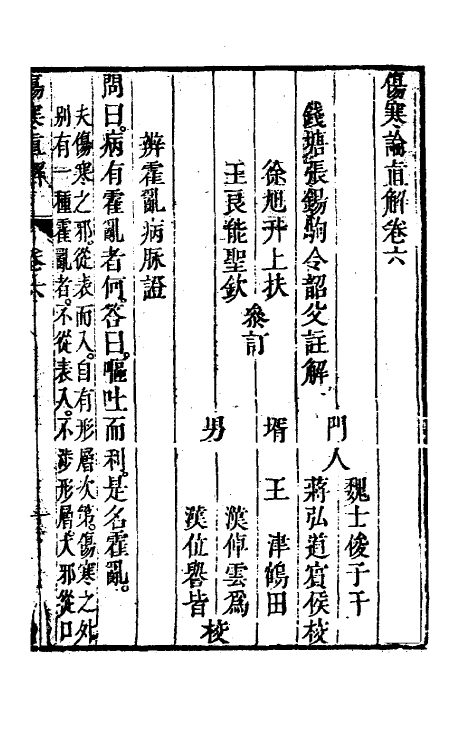 傷寒論直解卷六
錢塘張錫駒令韶父註解
徐旭升上扶
王良能聖欽
叅訂
門人
魏士俊子干
蔣弘道賓侯校
壻
王津鶴田
男
漢倬雲爲
漢位譽皆
校
辨霍亂病脉證
問曰。病有霍亂者何。答曰。嘔吐而利。是名霍亂。
夫傷寒之邪。從表而入。自有形層次第。傷寒之外
別有一種霍亂者。不從表入。不涉形層。大邪從口
傷寒直解
卷六